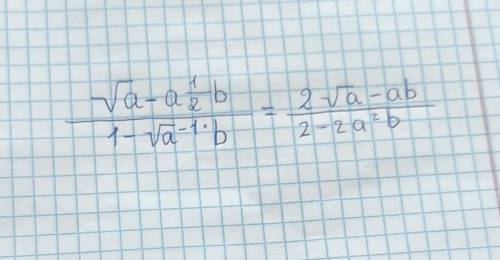 \frac{\sqrt{a} - a\frac{1}{2}b}{1 - \sqrt{a}^{-1} \cdot b} = \frac{2\sqrt{a} - ab}{2 - 2a^2b}